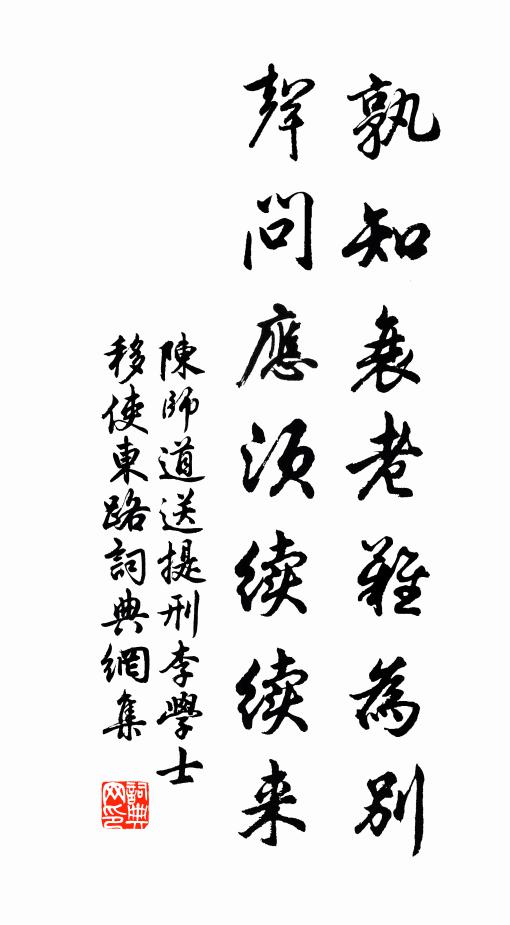 孰知衰老難為別
聲問應須续续来
陳師道送提刑李學士
移使東路詞典網集
詞典网印